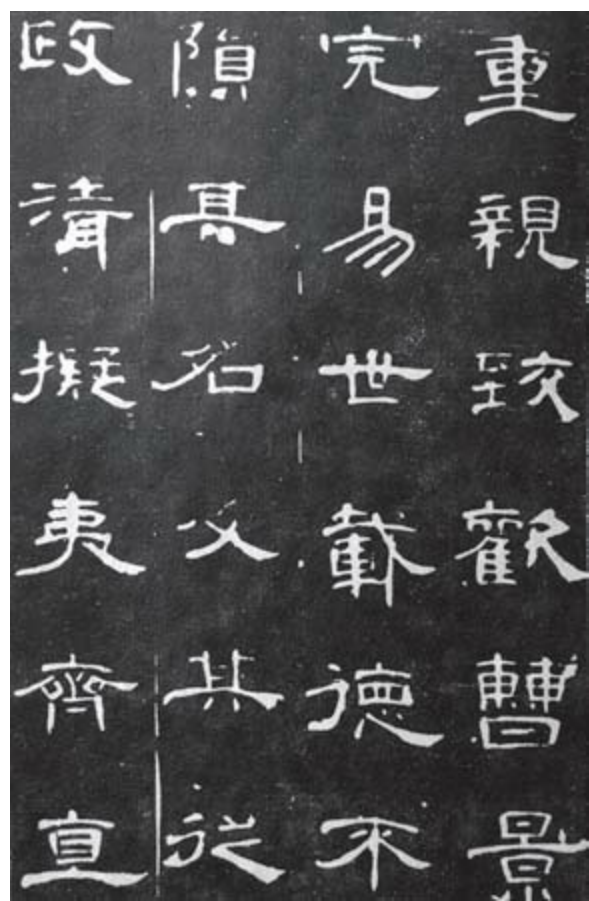 重親致歡曹景
完易世載德不
隕其名及其從
政清擬夷齊直